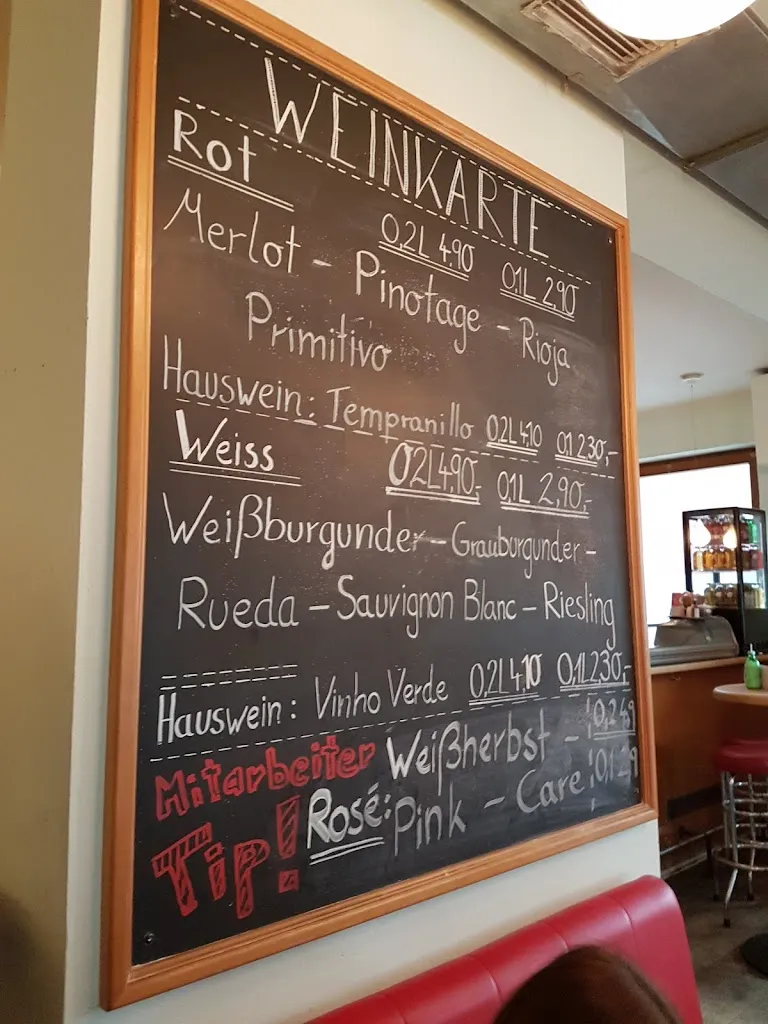 WEINKARTE
Rot 0,2L 4.90 0,1L 2,90
Merlot - Pinotage - Rioja
Primitivo
Hauswein: Tempranillo 0,2L 4,10 0,1 2,30,-
Weiss 0,2L 4,90,- 0,1L 2,90,-
Weißburgunder - Grauburgunder -
Rueda - Sauvignon Blanc - Riesling
Hauswein: Vinho Verde 0,2L 4,10 0,1L 2,30,-
Mitarbeiter Weißherbst - 0,2 4,9
Tip! Rosé: Pink - Care 0,1 2,9